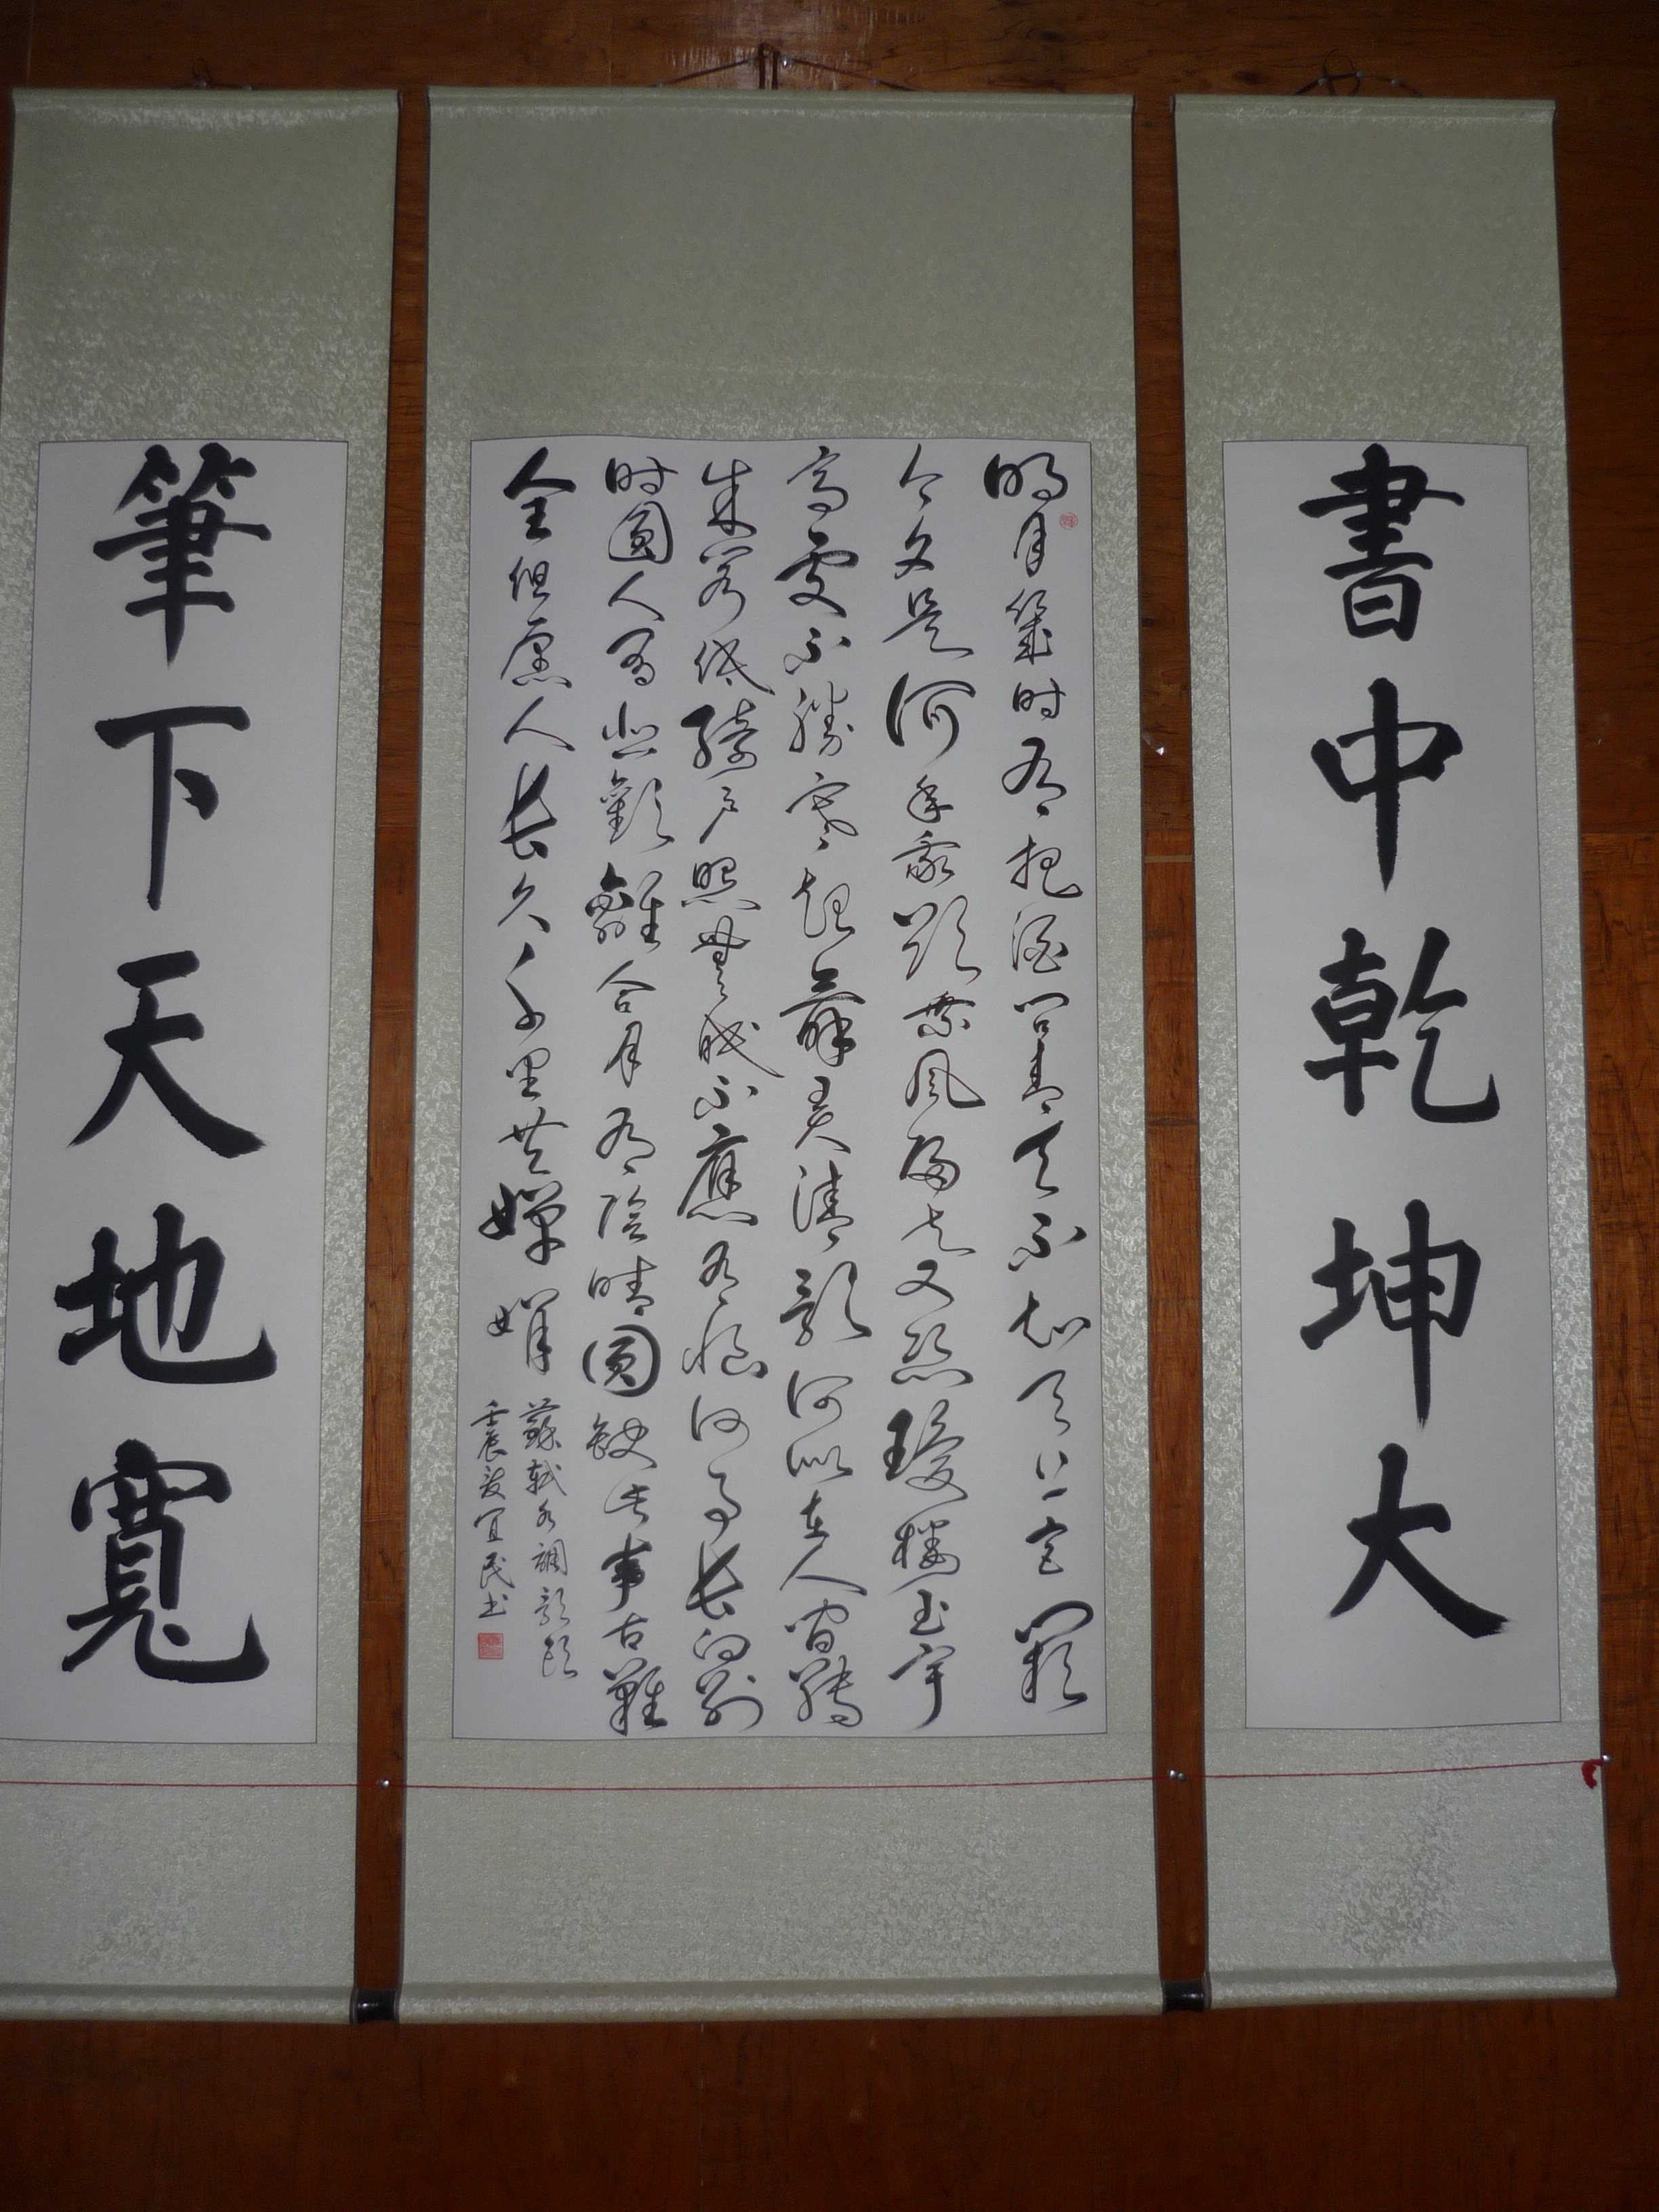 書中乾坤大
明月幾时有把酒问青天不知天上宫闕
今夕是何年我欲乘风歸去又恐瓊樓玉宇
高處不勝寒起舞弄清影何似在人间轉
朱阁低绮户照無眠不應有恨何事长向别
时圓人有悲歡離合月有陰晴圓缺此事古難
全但愿人长久千里共嬋娟
蘇轼水調歌頭
壬辰夏宜民书
筆下天地寬